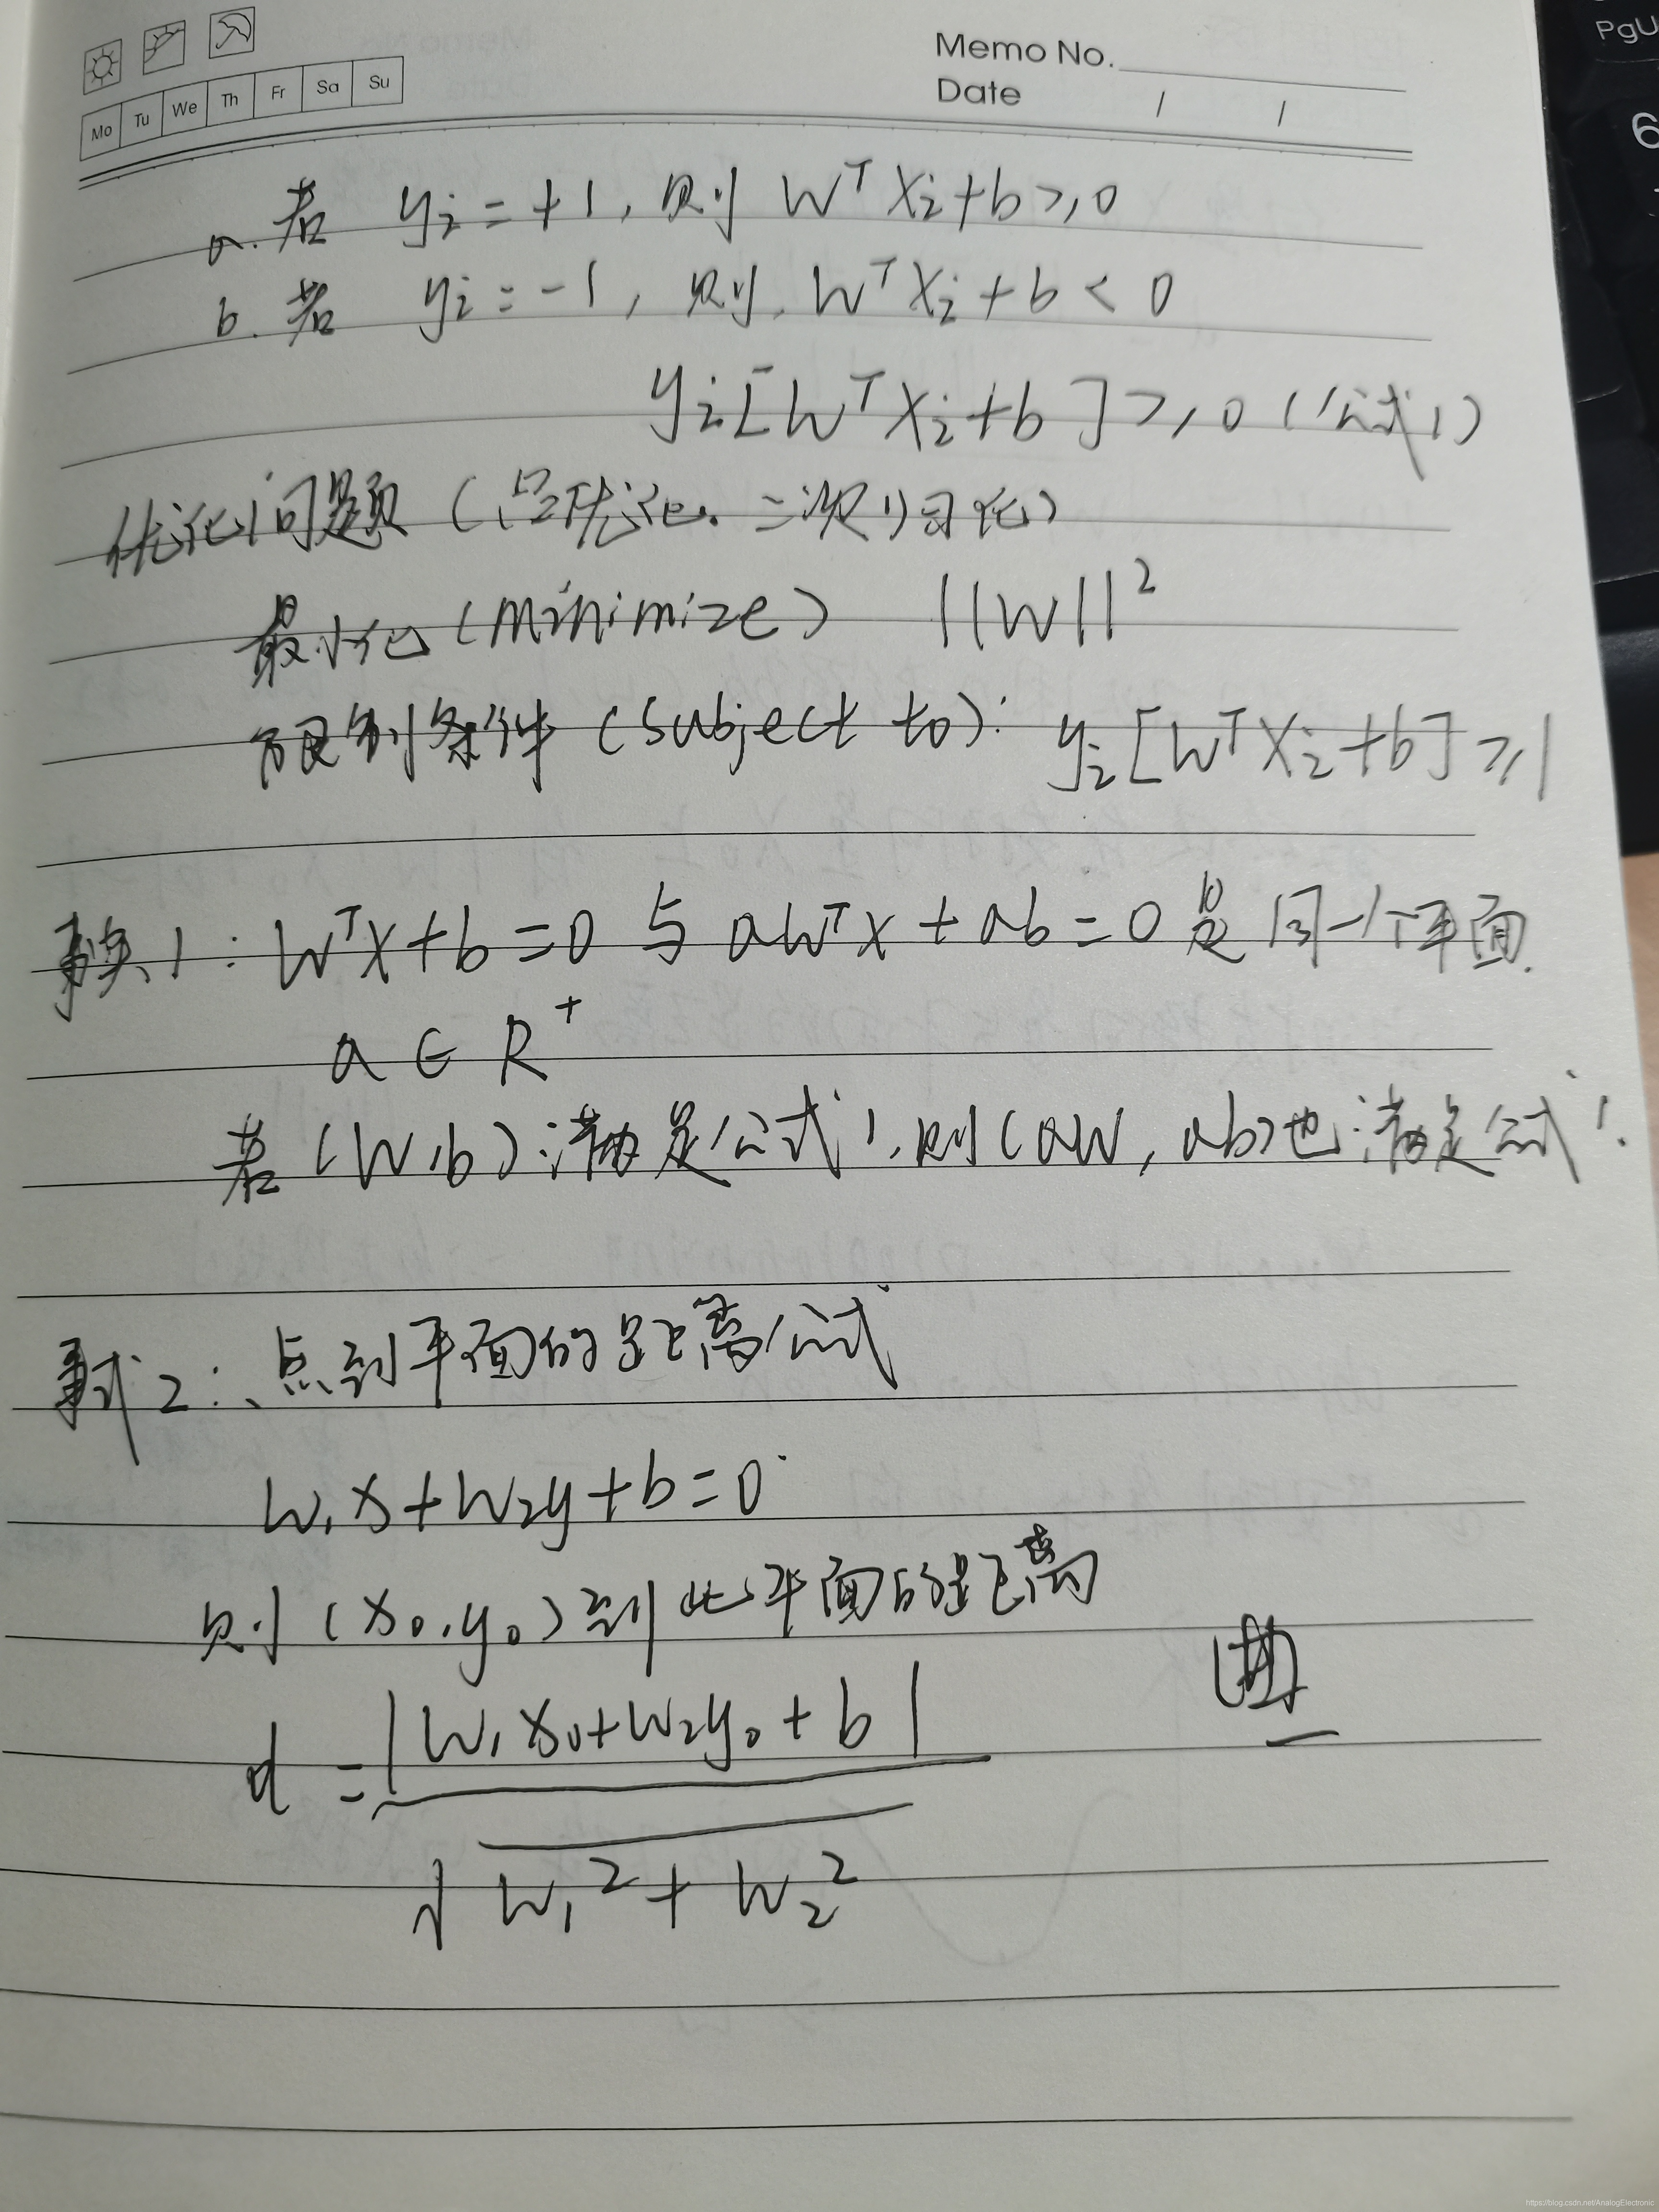 Memo No.
Date / /
Mo Tu We Th Fr Sa Su
PgU
6
a. 若 yi = +1, 则 W^T Xi + b ≥ 0
b. 若 yi = -1, 则 W^T Xi + b < 0
yi [W^T Xi + b] ≥ 0 (公式1)
优化问题 (凸优化. 二次归化)
最小化 (Minimize) ||W||^2
限制条件 (Subject to): yi [W^T Xi + b] ≥ 1
事实1: W^T X + b = 0 与 aW^T X + ab = 0 是同一个平面.
a ∈ R^+
若 (W, b) 满足公式1, 则 (aW, ab) 也满足公式1.
2: 点到平面的距离公式
W1 x + W2 y + b = 0
则 (x0, y0) 到此平面的距离
d = |W1 x0 + W2 y0 + b| / √(W1^2 + W2^2)
https://blog.csdn.net/AnalogElectronic